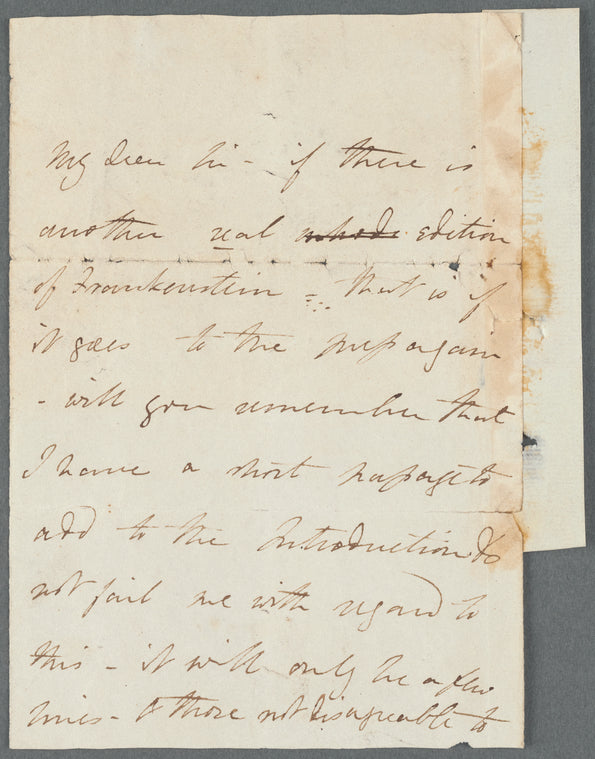 My dear Sir – if there is
another real edition
of Frankenstein – that is if
it goes to the press again
– will you remember that
I have a short passage to
add to the Introduction. Do
not fail me with regard to
this – it will only be a few
lines – & those not disagreeable to